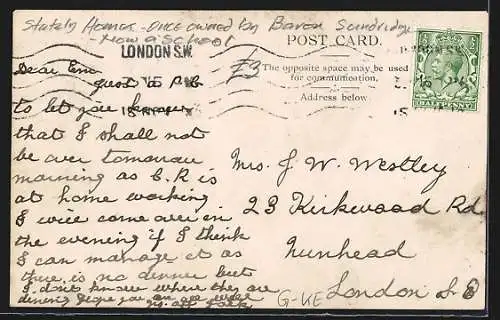 Stately Homes - once owned by Baron Sundridge
- Now a School
LONDON.S.W.
POST CARD.
£3
The opposite space may be used
for communication.
Address below
HALFPENNY
Dear Em
just a P.C
to let you know
that I shall not
be over tomorrow
morning as C.R is
at home working
I will come over in
the evening if I think
I can manage it as
there is no dinner but
I don't know where they are
dining hope you
Mrs. J. W. Westley
23 Kirkwood Rd
Nunhead
London S.E
G-KE